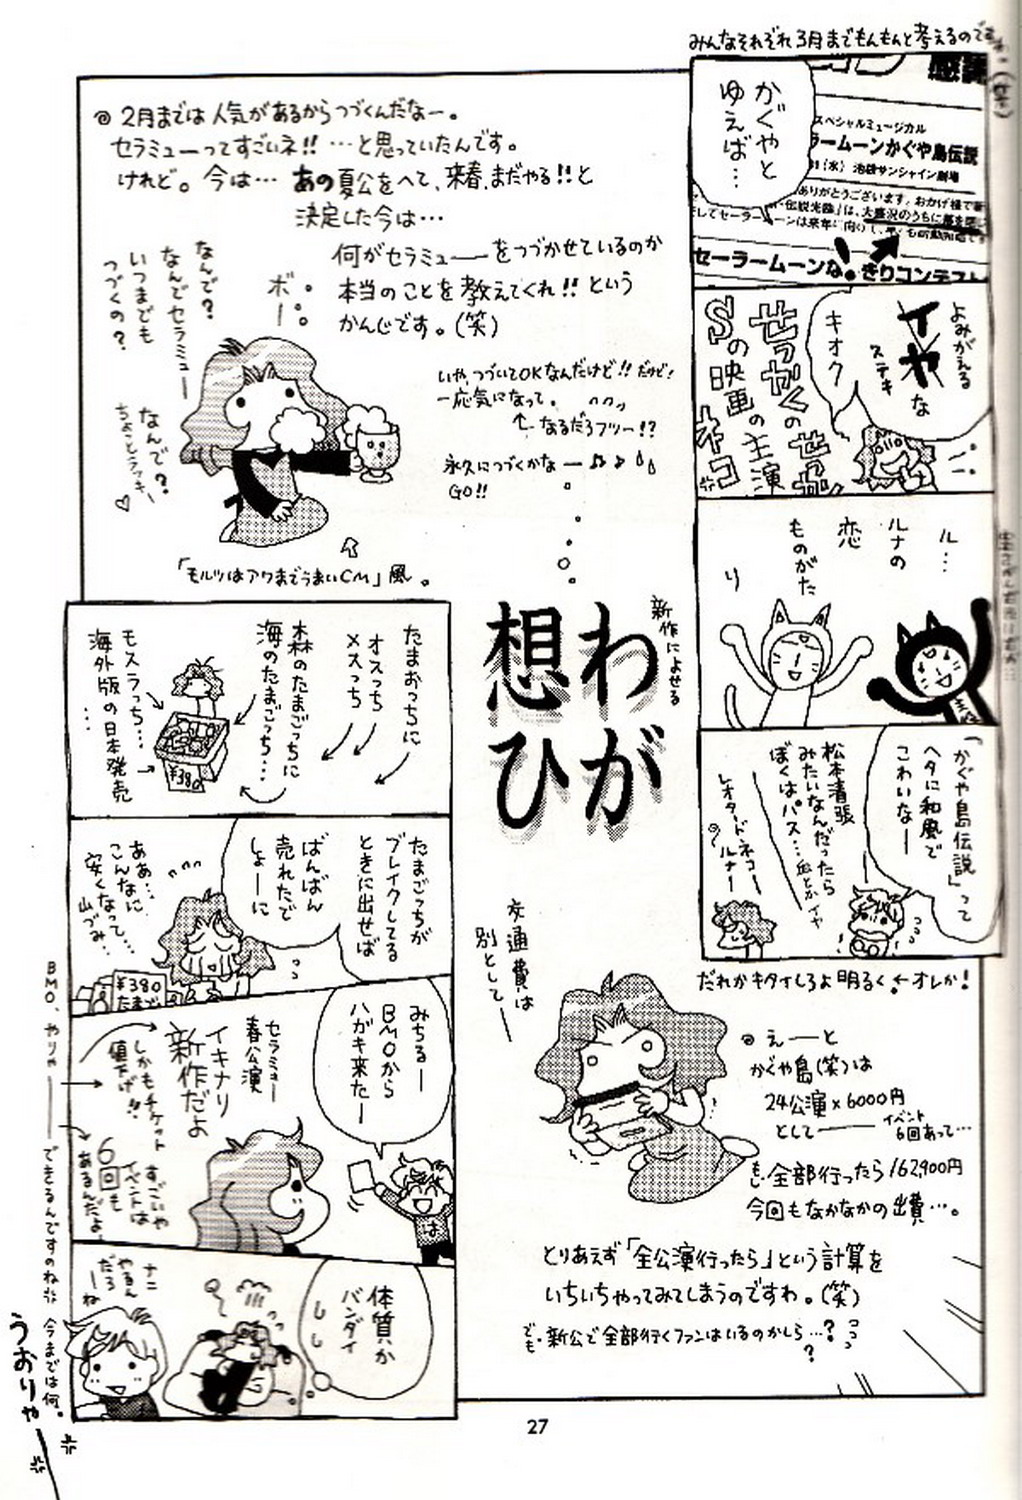 みんなそれぞれ3月までもんもんと考えるのですわ。(笑)
かぐやと
ゆえば…
スペシャルミュージカル
ラームーンかぐや島伝説
(水) 池袋サンシャイン劇場
ありがとうございます。おかげ様で
伝説光臨」は、大盛況のうちに幕を閉じ
してセーラームーンは来年
セーラームーンな
きりコンテスト
よみがえる
イヤな
ステキ
キオク
せっかくのせっかく
Sの映画の主演
ネコ
ル…
ルナの
恋
ものがた
り
「かぐや島伝説」って
ヘタに和風で
こわいなー
松本清張
みたいなんだったら
ぼくはパス…
レオタードネコー
ルナー
だれかキタイしろよ明るく。←オレか!
◎2月までは人気があるからつづくんだなー。
セラミューってすごいネ!!…と思っていたんです。
けれど。今は…あの夏公をへて、来春、まだやる!!と
決定した今は…
何がセラミュー――をつづかせているのか
本当のことを教えてくれ!!という
かんじです。(笑)
なんで?
なんでセラミュー
いつまでも
つづくの?
ボー
なんで?
ちょことラッキー♡
いや、つづいてOKなんだけど!!だけど!
一応気になって。
↑なるだろフツー!?
永久につづくかな―♪♪
GO!!
「モルツはアワまでうまいCM」風。
新作によせる
わが
想ひ
たまおっちに
オスっち
メスっち
森のたまごっちに
海のたまごっち…
モスラっち…
海外版の日本発売
…
¥380
たまごっちが
ブレイクしてる
ときに出せば
ばんばん
売れたで
しょーに
ああ…
こんなに
安くなって…
山づみ…
¥380
たまご
みちるー
BMOから
ハガキ来たー
セラミュー
春公演
イキナリ
新作だよ
しかもチケット
値下げ!!
すごいや
イベントは
6回も
あるんだよ
体質か
バンダイ
しし
ナニ
やるん
だろ
ーね
BMO、やりゃ――できるんですのね 今までは何。
うおりゃー
交通費は
別として―
◎えーと
かぐや島(笑)は
24公演×6000円
として―― イベント
6回あって…
もし全部行ったら162,900円
今回もなかなかの出費…。
とりあえず「全公演行ったら」という計算を
いちいちやってみてしまうのですわ。(笑)
でも新公で全部行くファンはいるのかしら…??
27